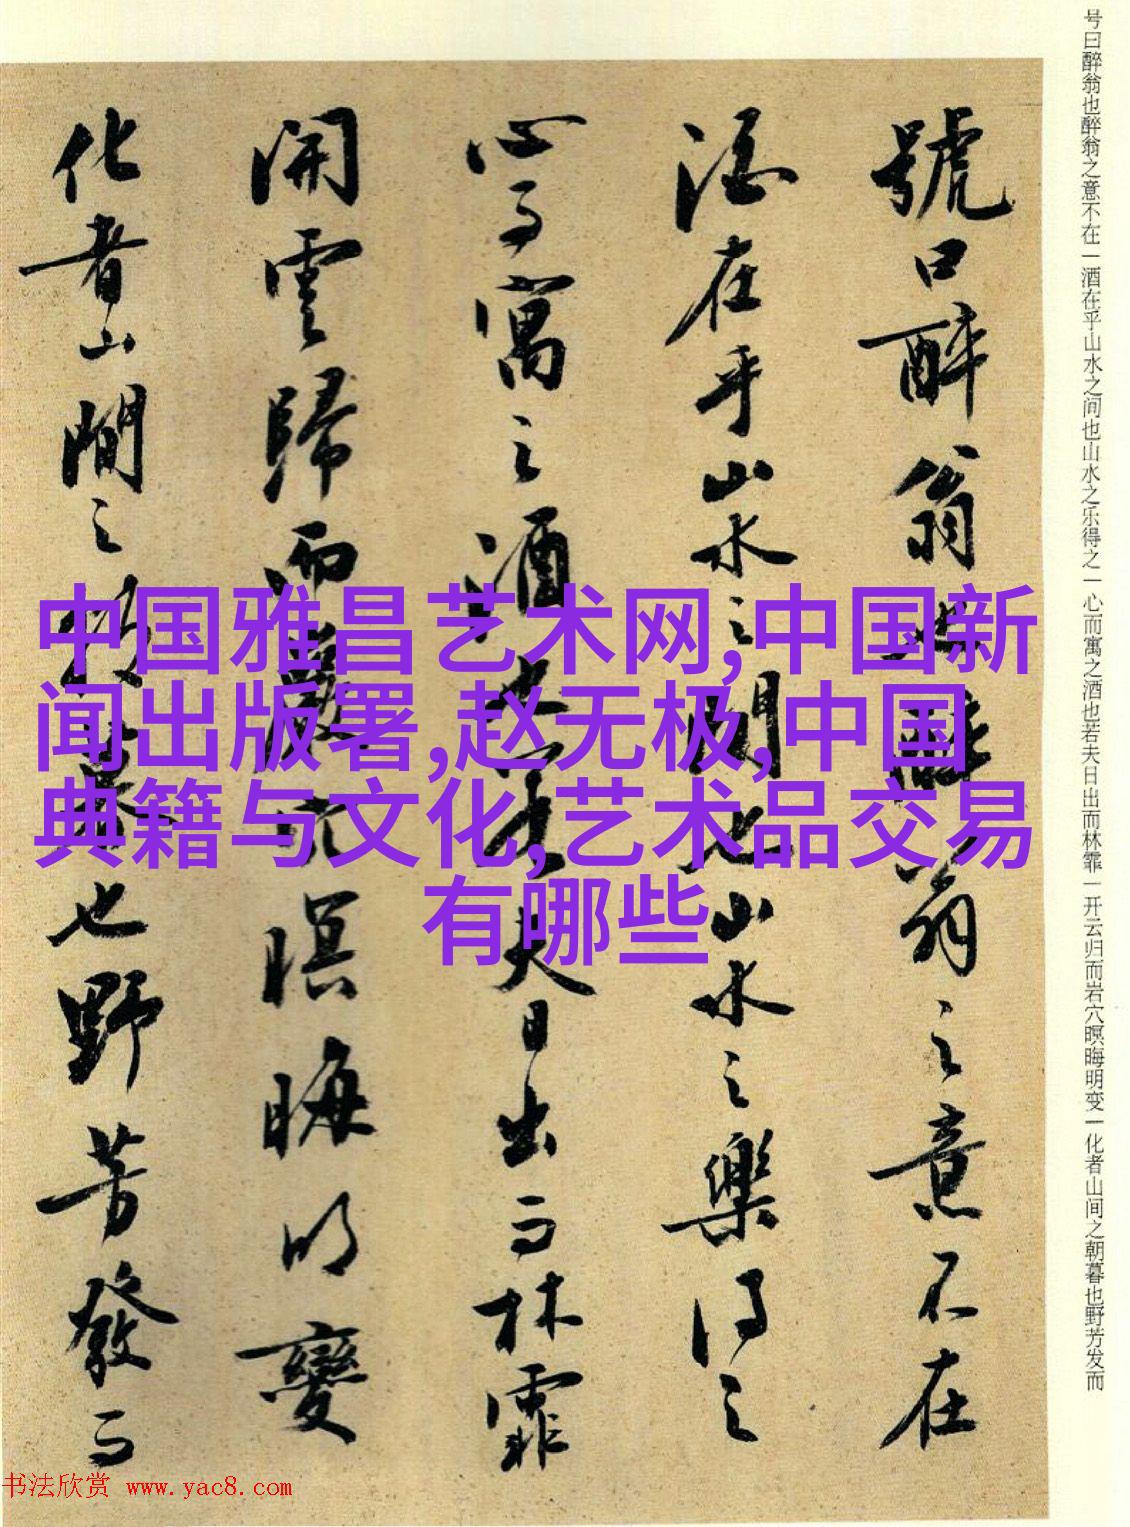 号曰醉翁也醉翁之意不在一酒在乎山水之间也山水之乐得之一心而寓之酒也若夫日出而林霏一开云归而岩穴暝晦明变一化者山间之朝暮也野芳发而
號曰醉翁也醉翁之意不在
酒在乎山水之間也山水之樂得之
心而寓之酒也若夫日出而林霏
開雲歸而巖穴暝晦明變
化者山間之朝暮也野芳發而
中国雅昌艺术网,中国新
闻出版署,赵无极,中国
典籍与文化,艺术品交易
有哪些
书法欣赏 www.yac8.com